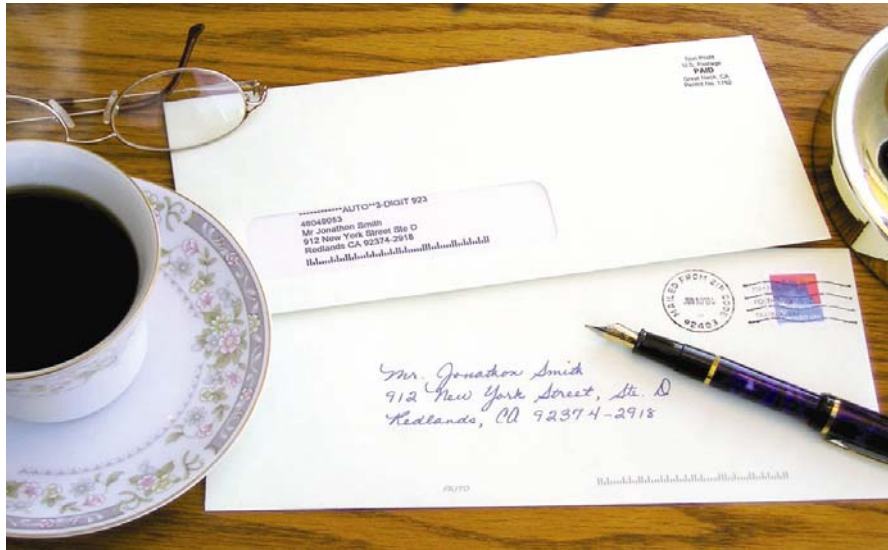 U.S. Postage
PAID
Great Neck, CA
Permit No. 1762
************AUTO**3-DIGIT 923
48049053
Mr Jonathon Smith
912 New York Street Ste D
Redlands CA 92374-2918
MAILED FROM ZIP CODE
92403
Mr. Jonathon Smith
912 New York Street, Ste. D
Redlands, CA 92374-2918
AUTO